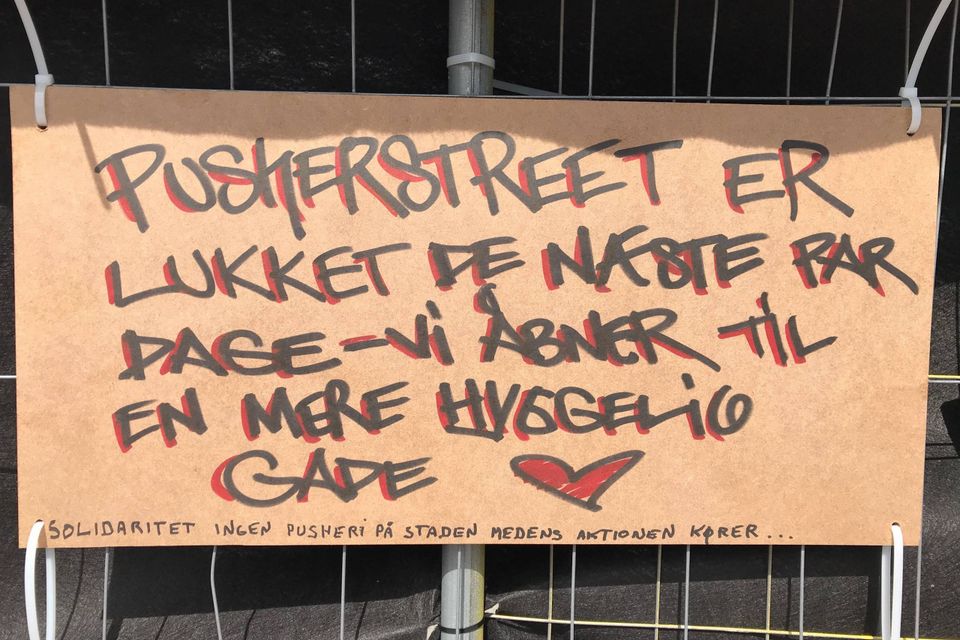 PUSHERSTREET ER
LUKKET DE NÆSTE PAR
DAGE - Vi ÅBNER TiL
EN MERE HYGGELiG
GADE
SOLIDARITET INGEN PUSHERi PÅ STADEN MEDENS AKTIONEN KØRER...